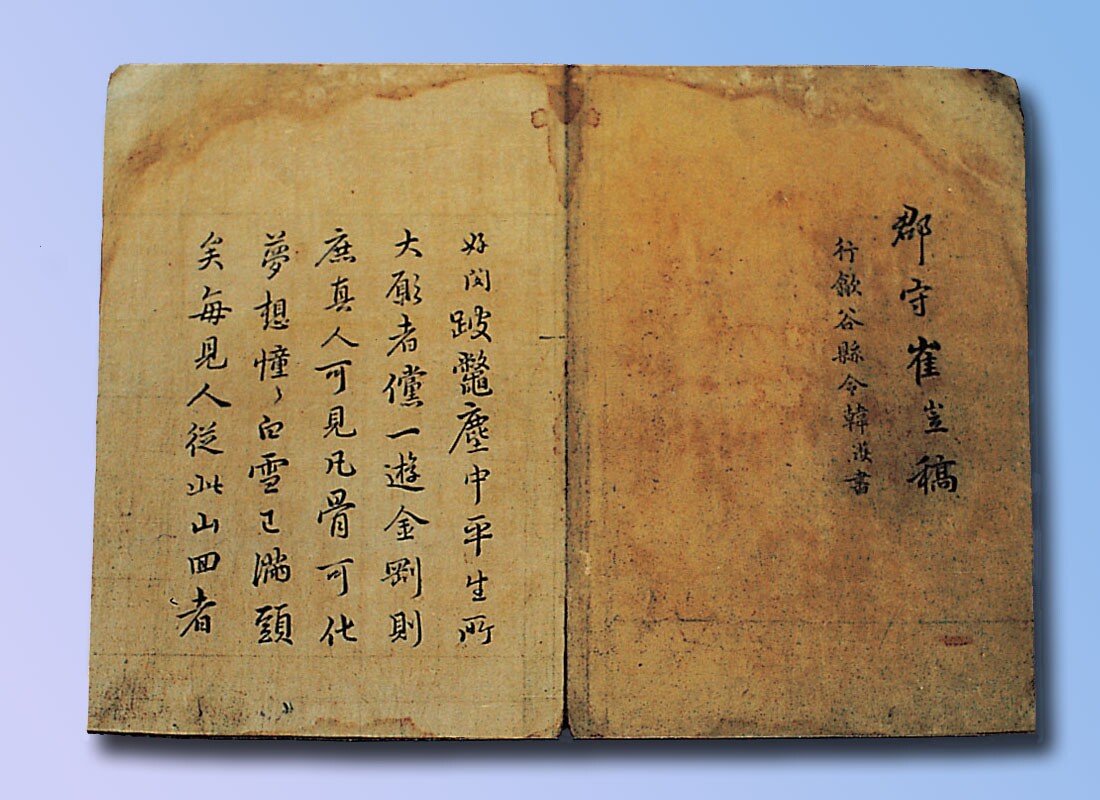 郡守崔岦稿
行歙谷縣令韓濩書
好閔跛鼈塵中平生所
大願者儻一遊金剛則
庶真人可見凡骨可化
夢想憧〻白雪已滿頭
矣每見人從此山回者